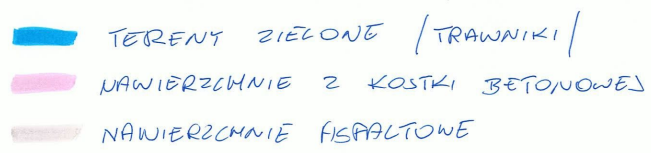 TERENY ZIELONE /TRAWNIKI/
NAWIERZCHNIE Z KOSTKI BETONOWEJ
NAWIERZCHNIE ASFALTOWE